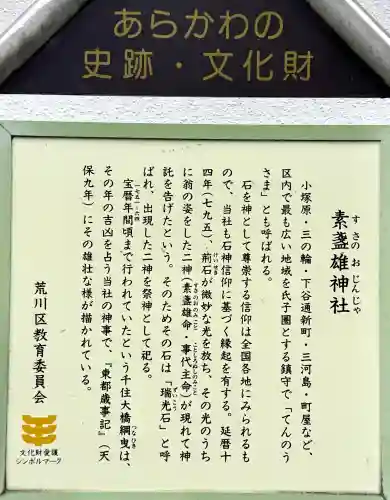 あらかわの
史跡・文化財
素盞雄神社
すさのおじんじゃ
小塚原・三の輪・下谷通新町・三河島・町屋など、
区内で最も広い地域を氏子圏とする鎮守で「てんのう
さま」とも呼ばれる。
石を神として尊崇する信仰は全国各地にみられるも
ので、当社も石神信仰に基づく縁起を有する。延暦十
四年（七九五）、荊石が微妙な光を放ち、その光のうち
けいせき
に翁の姿をした二神（素盞雄命・事代主命）が現れて神
すさのおのみこと
ことしろぬしのみこと
託を告げたという。そのためその石は「瑞光石」と呼
ずいこう
ばれ、出現した二神を祭神として祀る。
宝暦年間頃まで行われていたという千住大橋綱曳は、
（一七五一－六四）
つなひき
その年の吉凶を占う当社の神事で、『東都歳事記』（天
保九年）にその雄壮な様が描かれている。
荒川区教育委員会
文化財愛護
シンボルマーク